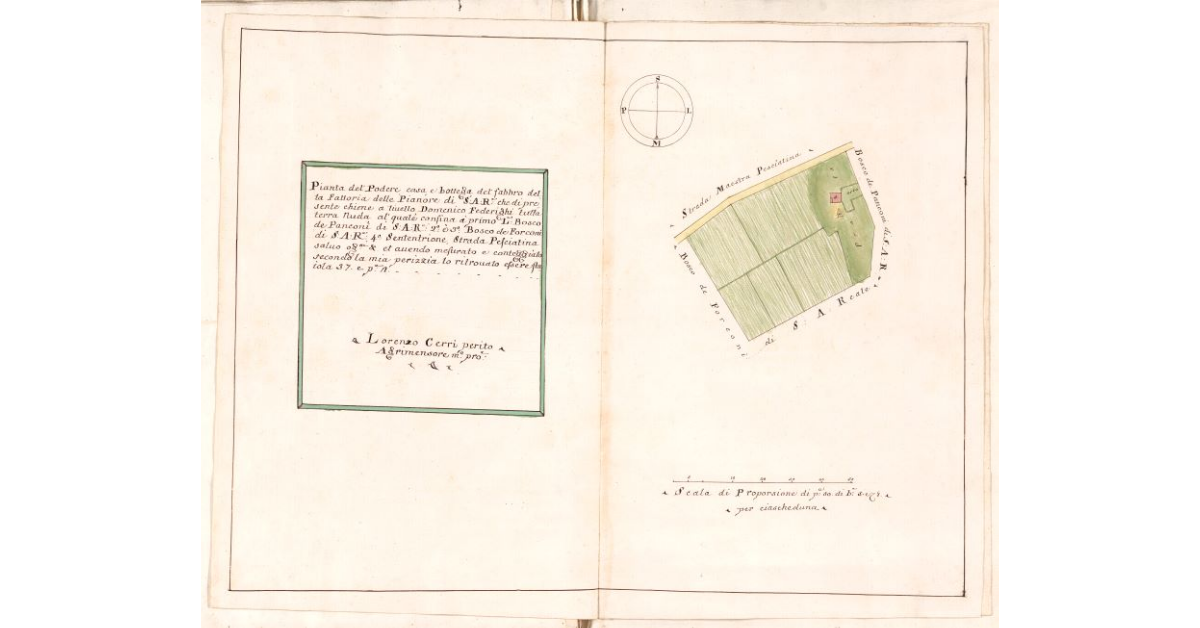 Pianta del Podere casa e bottega del fabbro del
la Fattoria delle Pianore di S.A.R. che di pre
sente tiene a livello Domenico Federighi tutta
terra nuda al quale confina a primo Lo. Bosco
de Panconi di S.A.R. 2o. è 3o. Bosco de Forconi
di S.A.R. 4o Sententrione, Strada Pesciatina
salvo et avendo mesurato e
secondo la mia perizzia lo ritrovato essere sta
iola 37. e
Lorenzo Cerri perito
Agrimensore mo. pro.
S
P L
M
Strada Maestra Pesciatina
Bosco de Panconi di S.A.R.
Bosco de Forconi
di S. A. Reale
Scala di Proporzione di
per ciascheduna